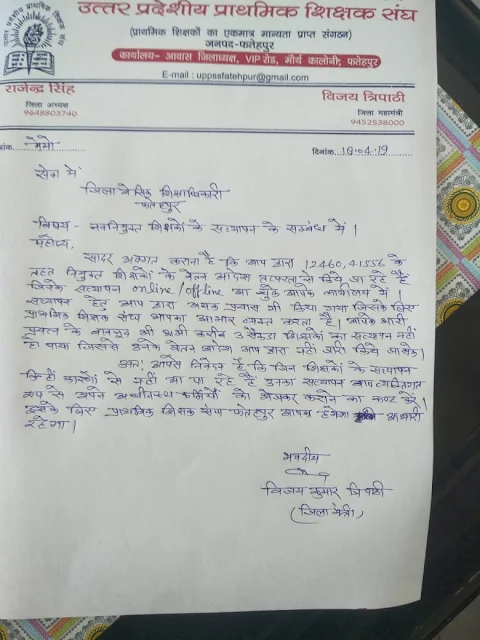 उत्तर प्रदेशीय प्राथमिक शिक्षक संघ
(प्राथमिक शिक्षकों का एकमात्र मान्यता प्राप्त संगठन)
जनपद-फतेहपुर
कार्यालय- आवास जिलाध्यक्ष, VIP रोड, मौर्य कालोनी, फतेहपुर
E-mail : uppssfatehpur@gmail.com
राजेन्द्र सिंह
जिला अध्यक्ष
9648803740
विजय त्रिपाठी
जिला महामंत्री
9452538000
दिनांक. 18.04.19
सेवा में
जिला बेसिक शिक्षाधिकारी
फतेहपुर
विषय - नवनियुक्त शिक्षकों के सत्यापन के सम्बंध में।
महोदय,
सादर अवगत कराना है कि आप द्वारा 12460, 41556 के
तहत नियुक्त शिक्षकों के वेतन आदेश तत्परता से किये जा रहे हैं
जिनके सत्यापन online/offline आ चुके आपके कार्यालय में।
सत्यापन हेतु आप द्वारा अथक प्रयास भी किया गया जिसके लिए
प्राथमिक शिक्षक संघ आपका आभार व्यक्त करता है। आपके भारी
प्रयत्न के बावजूद भी अभी करीब 3 सैकड़ा शिक्षकों का सत्यापन नहीं
हो पाया जिससे उनके वेतन आदेश आप द्वारा नहीं जारी किये जा सके।
अतः आपसे निवेदन है कि जिन शिक्षकों के सत्यापन
किन्हीं कारणों से नहीं आ पा रहे हैं उनका सत्यापन आप व्यक्तिगत
रूप से अपने अधीनस्थ कर्मियों को भेजकर कराने का कष्ट करें।
इसके लिए प्राथमिक शिक्षक संघ फतेहपुर आपका हमेशा आभारी
रहेगा।
भवदीय
विजय कुमार त्रिपाठी
(जिला मंत्री)